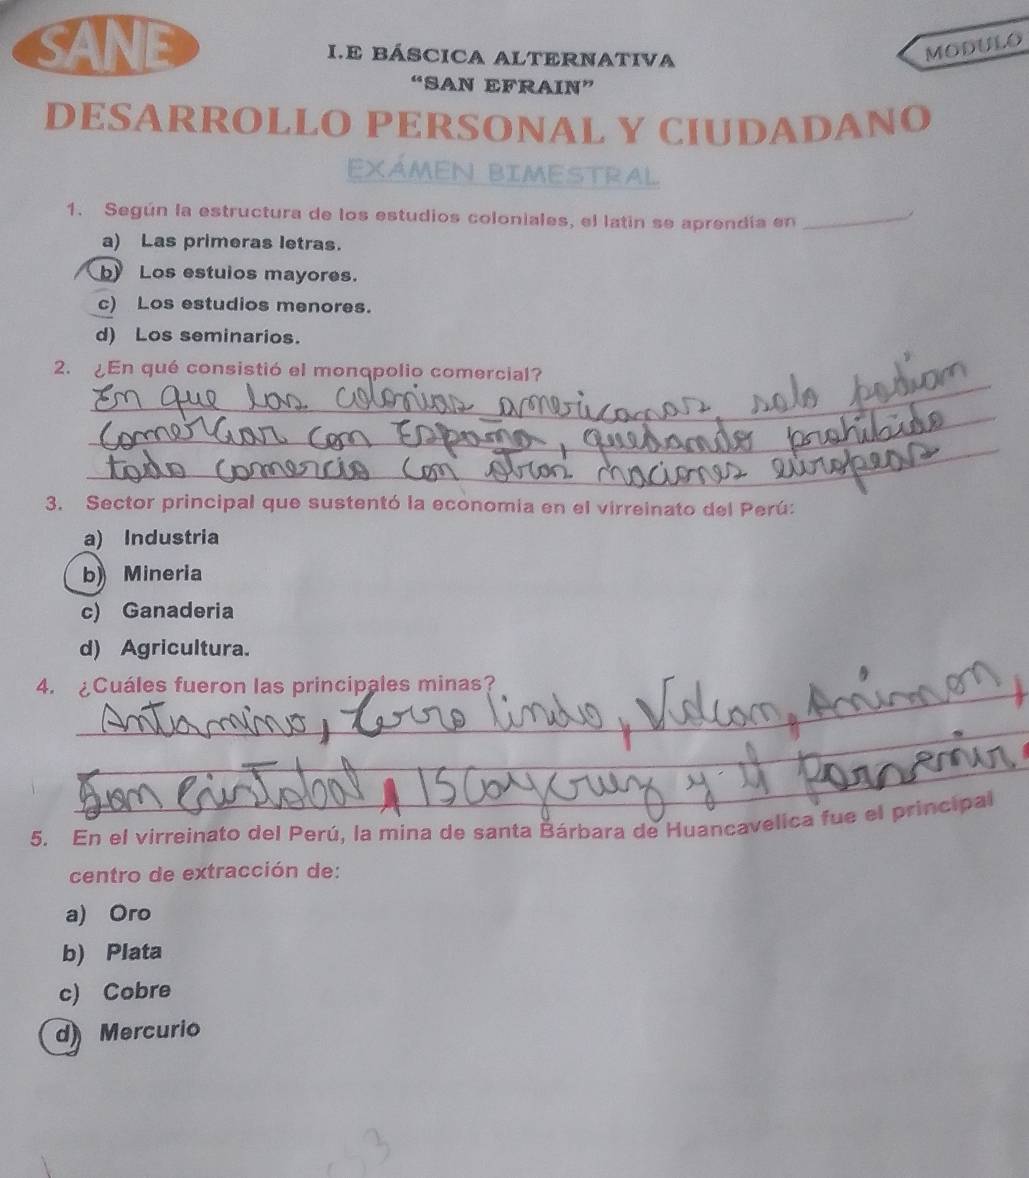 SANE
I.E BÁSCICA ALTERNATIVA
MODULO
“SAN EFRAIN”
DESARROLLO PERSONAL Y CIUDADANO
EXÁMEN BIMESTRAL
1. Según la estructura de los estudios coloniales, el latin se aprendía en
a) Las primeras letras.
b) Los estuios mayores.
c) Los estudios menores.
d) Los seminarios.
2. ¿En qué consistió el monopolio comercial?
En que las colonias americanas, solo podian
comerciar con España, quedando prohibido
todo comercio con otras naciones europeas
3. Sector principal que sustentó la economía en el virreinato del Perú:
a) Industria
b) Mineria
c) Ganaderia
d) Agricultura.
4. ¿Cuáles fueron las principales minas?
Antamina, Cerro lindo, Volcan, Animon,
San Cristobal, Iscaycruz y el Porvenir
5. En el virreinato del Perú, la mina de santa Bárbara de Huancavelica fue el principal
centro de extracción de:
a) Oro
b) Plata
c) Cobre
d) Mercurio